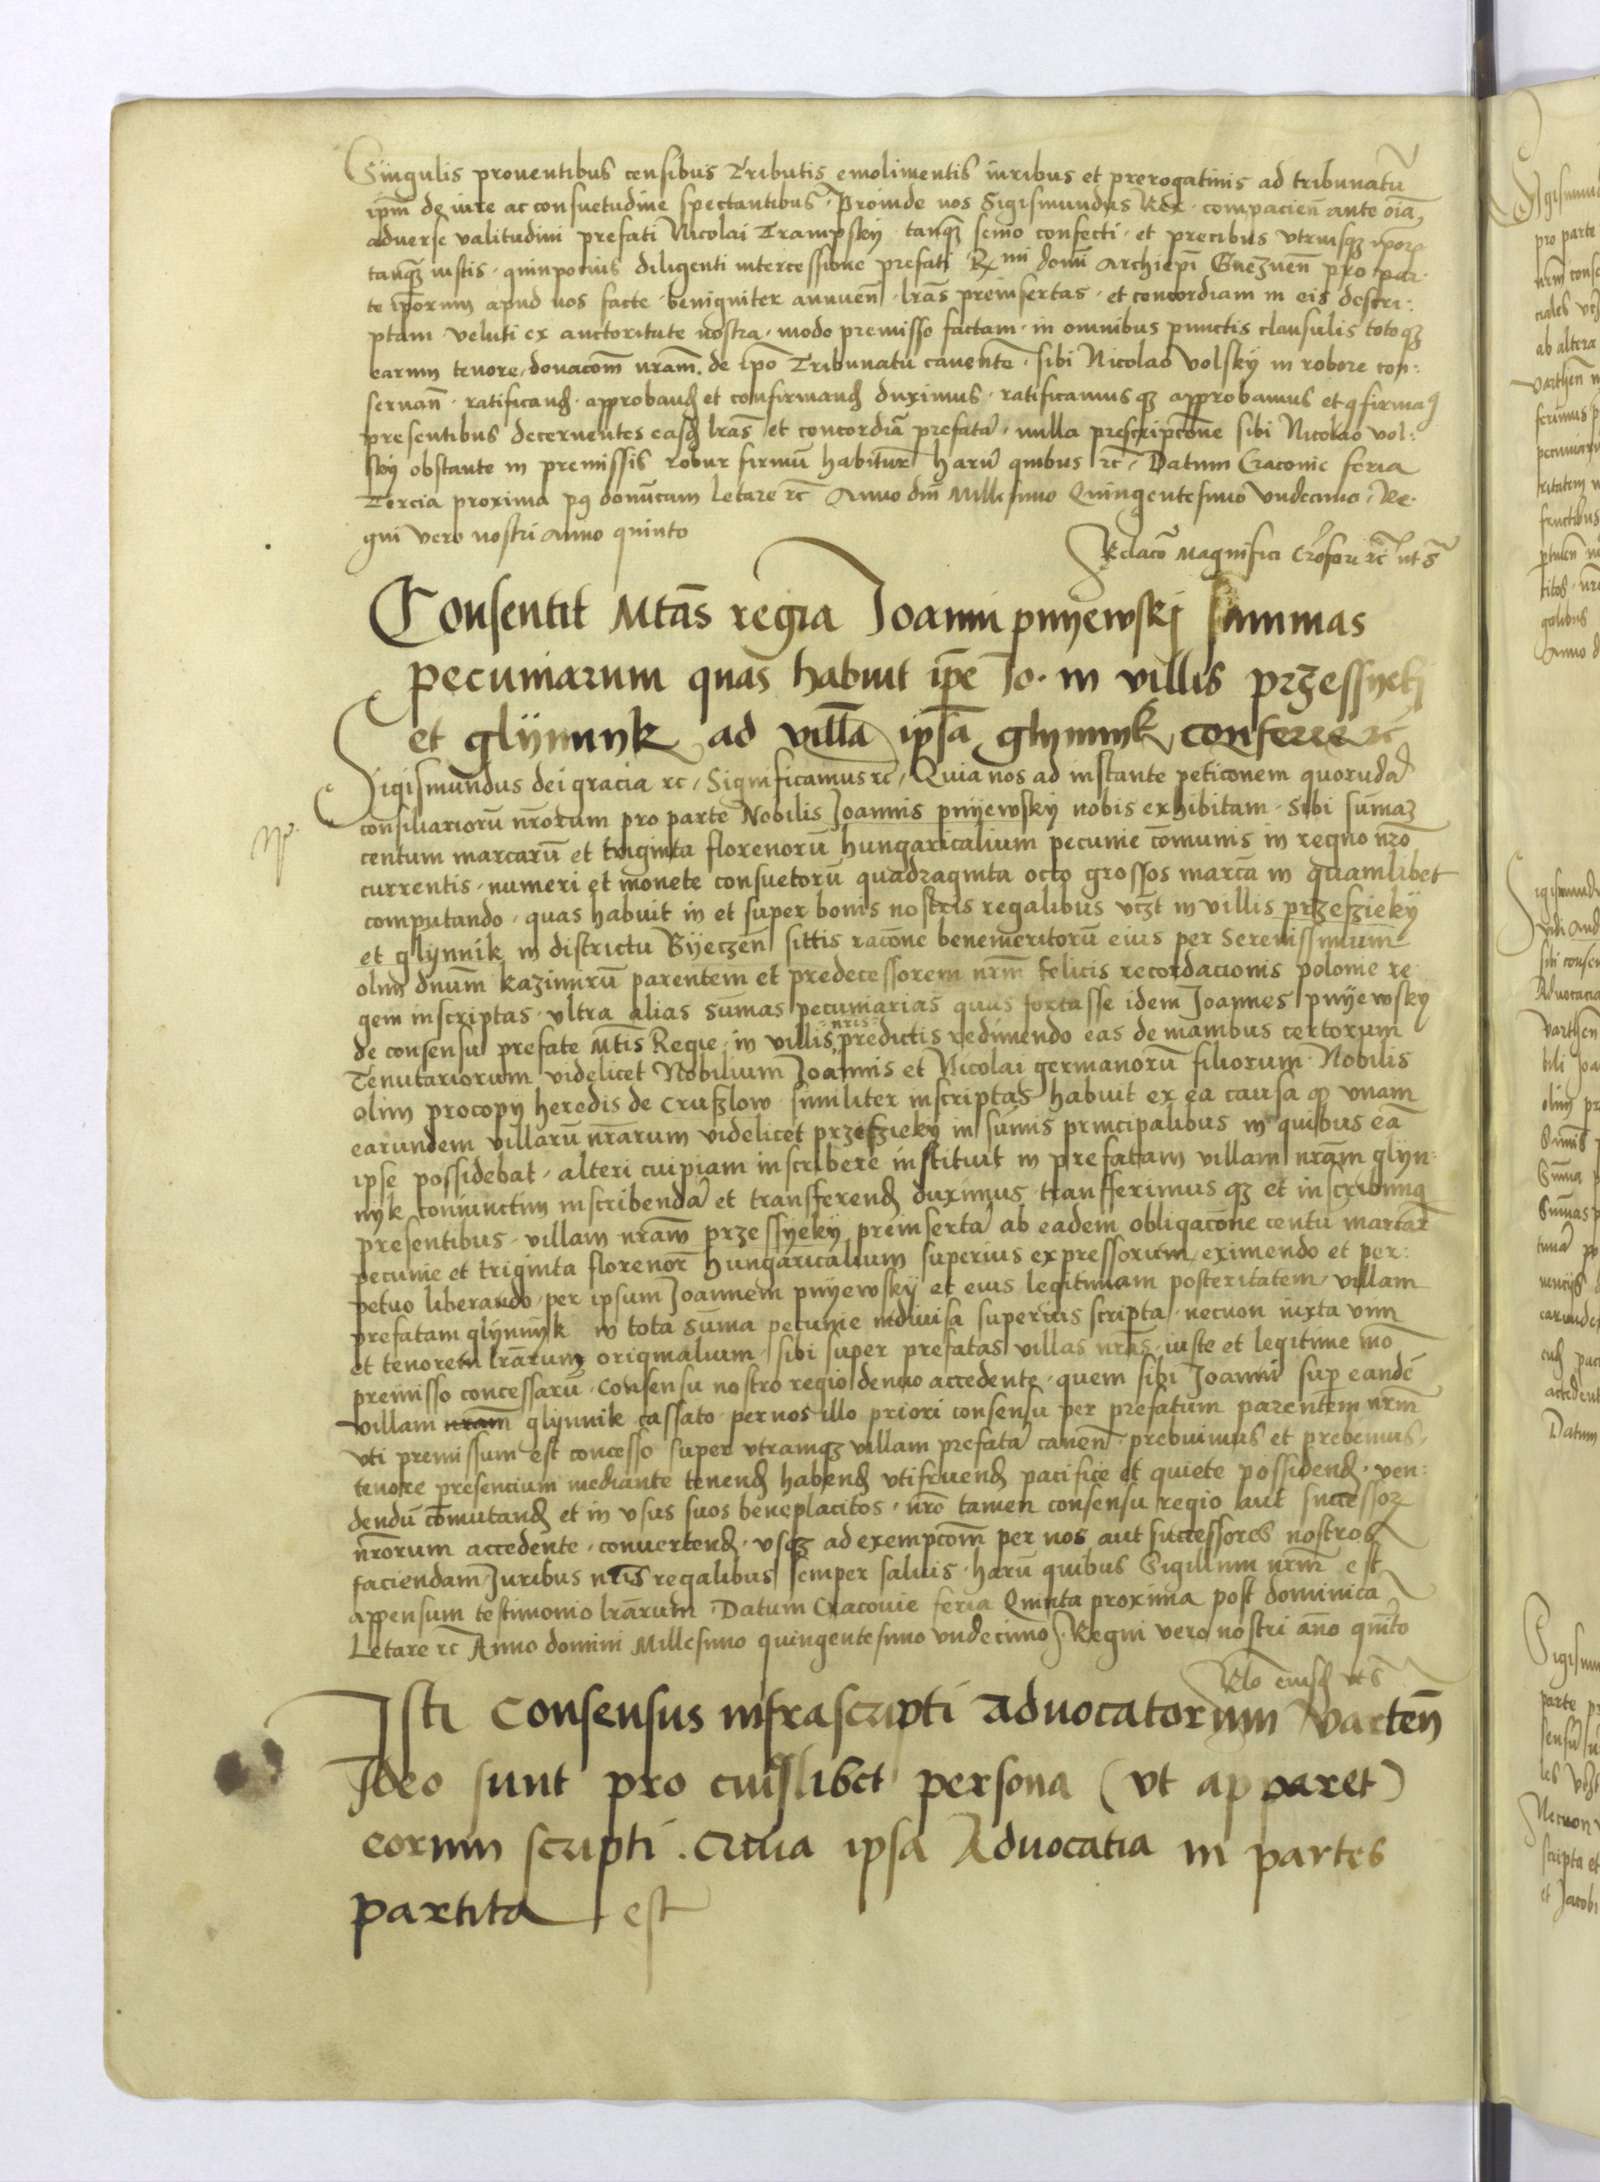 Singulis proventibus censibus Tributis emolimentis iuribus et prerogativis ad tribunatū
ipm̄ de iure ac consuetudine spectantibus. Proinde nos Sigismundus Rex compacien̄ ante oīa,
adverse valitudini prefati Nicolai Trampsky tanq̄ȝ senio confecti et precibus utriusqȝ ipoꝝ
tanq̄ȝ iustis quinpocius diligenti intercessione prefati Rmi domi Archiepi Gneznen̄ pro par
te ip̄orum apud nos facte benigniter annuen̄ lrās preinsertas et concordiam in eis descri:
ptam veluti ex auctoritate nostra modo premisso factam in omnibus punctis clausulis totoqȝ
earum tenore, donacom̄ nram̄ de ipo Tribunatu cavente sibi Nicolao Volsky in robore con:
servan̄ ratificand̄ approband̄ et confirmand̄ duximus ratificamusqȝ approbamus et ꝯfirmaꝰ
presentibus decernentes easd̄ lrās et concordiā prefatā nulla prescripcone sibi Nicolao Vol:
sky obstante in premissis robur firmū habitur̄ harū quibus rc̄ Datum Cracovie feria
Tercia proxima pꝰ donucam letare rc̄ Anno dni Millesimo Quingentesimo Undecimo, Re
gni vero nostri Anno quinto
Relacō Magnifici Crōfori rc̄ ut sᵃ
Consentit Mtās regia Joanni pnyewskj summas
pecuniarum quas habuit ip̄e Jo. in villis przessyekj
et glynnyk ad villā ipsā glynnyk conferre rc̄
Sigismundus dei gracia rc, Significamus rc, Quia nos ad instante peticonem quorūdā
consiliariorū nr̄orum pro parte Nobilis Joannis pnyewsky nobis exhibitam sibi sum̄aȝ
Nᵒ
centum marcarū et triginta florenorū hungaricalium pecunie com̄unis in regno nr̄o
currentis, numeri et monete consuetorū quadraginta octo grossos marcā in quamlibet
computando, quas habuit in et super bonis nostris regalibus vcȝt in villis przeszieky
et glynnik in districtu Byeczen̄ sittis racone benemeritorū eius per Serenissimum
olim dnūm kazimirū parentem et predecessorem nrm̄ felicis recordacionis polonie re
gem inscriptas, ultra alias sum̄as pecuniarias quas fortasse idem Joannes pnyewsky
de consensu prefate Mtis Regie in villis nris predictis redimendo eas de manibus certorum
Tenutariorum videlicet Nobilium Joannis et Nicolai germanorū filiorum Nobilis
olim procopy heredis de Cruszlow similiter inscriptas habuit ex ea causa qȝ unam
earundem villarū nrārum videlicet przeszieky in sum̄is principalibus in quibus eā
ipse possidebat, alteri cuipiam inscribere instituit in prefatam villam nrām glyn:
nyk coniunctim inscribendā et transferend̄ duximus transferimusqȝ et inscribimꝰ
presentibus, villam nrām przessyeky preinsertā ab eadem obligacone centū marcar̄
pecunie et triginta florenor̄ hungaricalium superius expressorum, eximendo et per:
petuo liberando, per ipsum Joannem pnyewsky et eius legitimam posteritatem, villam
prefatam glynnyk in tota sum̄a pecunie indivisa superius scripta, necnon iuxta vim
et tenorem lrārum originalium, sibi super prefatas villas nrās, iuste et legitime mo
premisso concessarū, Consensu nostro regio denuo accedente, quem sibi Joanni sup eandē
villam nrām glynnik cassato per nos illo priori consensu per prefatum parentem nrm̄
uti premissum est concesso super utramqȝ villam prefatā caven̄, prebuimus et prebemus,
tenore presencium mediante tenend̄ habend̄ utifruend̄ pacifice et quiete possidend̄, ven:
dendū com̄utand̄ et in usus suos beneplacitos, nr̄o tamen consensu regio aut successoꝝ
nr̄orum accedente, convertend̄, usqȝ ad exempcom̄ per nos aut successores nostros
faciendam Juribus nr̄is regalibus semper salvis, harū quibus Sigillum nrm̄ est
appensum testimonio lrārum, Datum Cracovie feria Quinta proxima post dominica
Letare rc̄ Anno domini Millesimo quingentesimo undecimo, Regni vero nostri ano quīto
Rlo eiusd̄ ut sᵃ
Isti Consensus infrascripti advocatorum Varten̄
Ideo sunt pro cuiuslibet persona (ut apparet)
eorum scripti. Circa ipsa Advocatia in partes
partita est